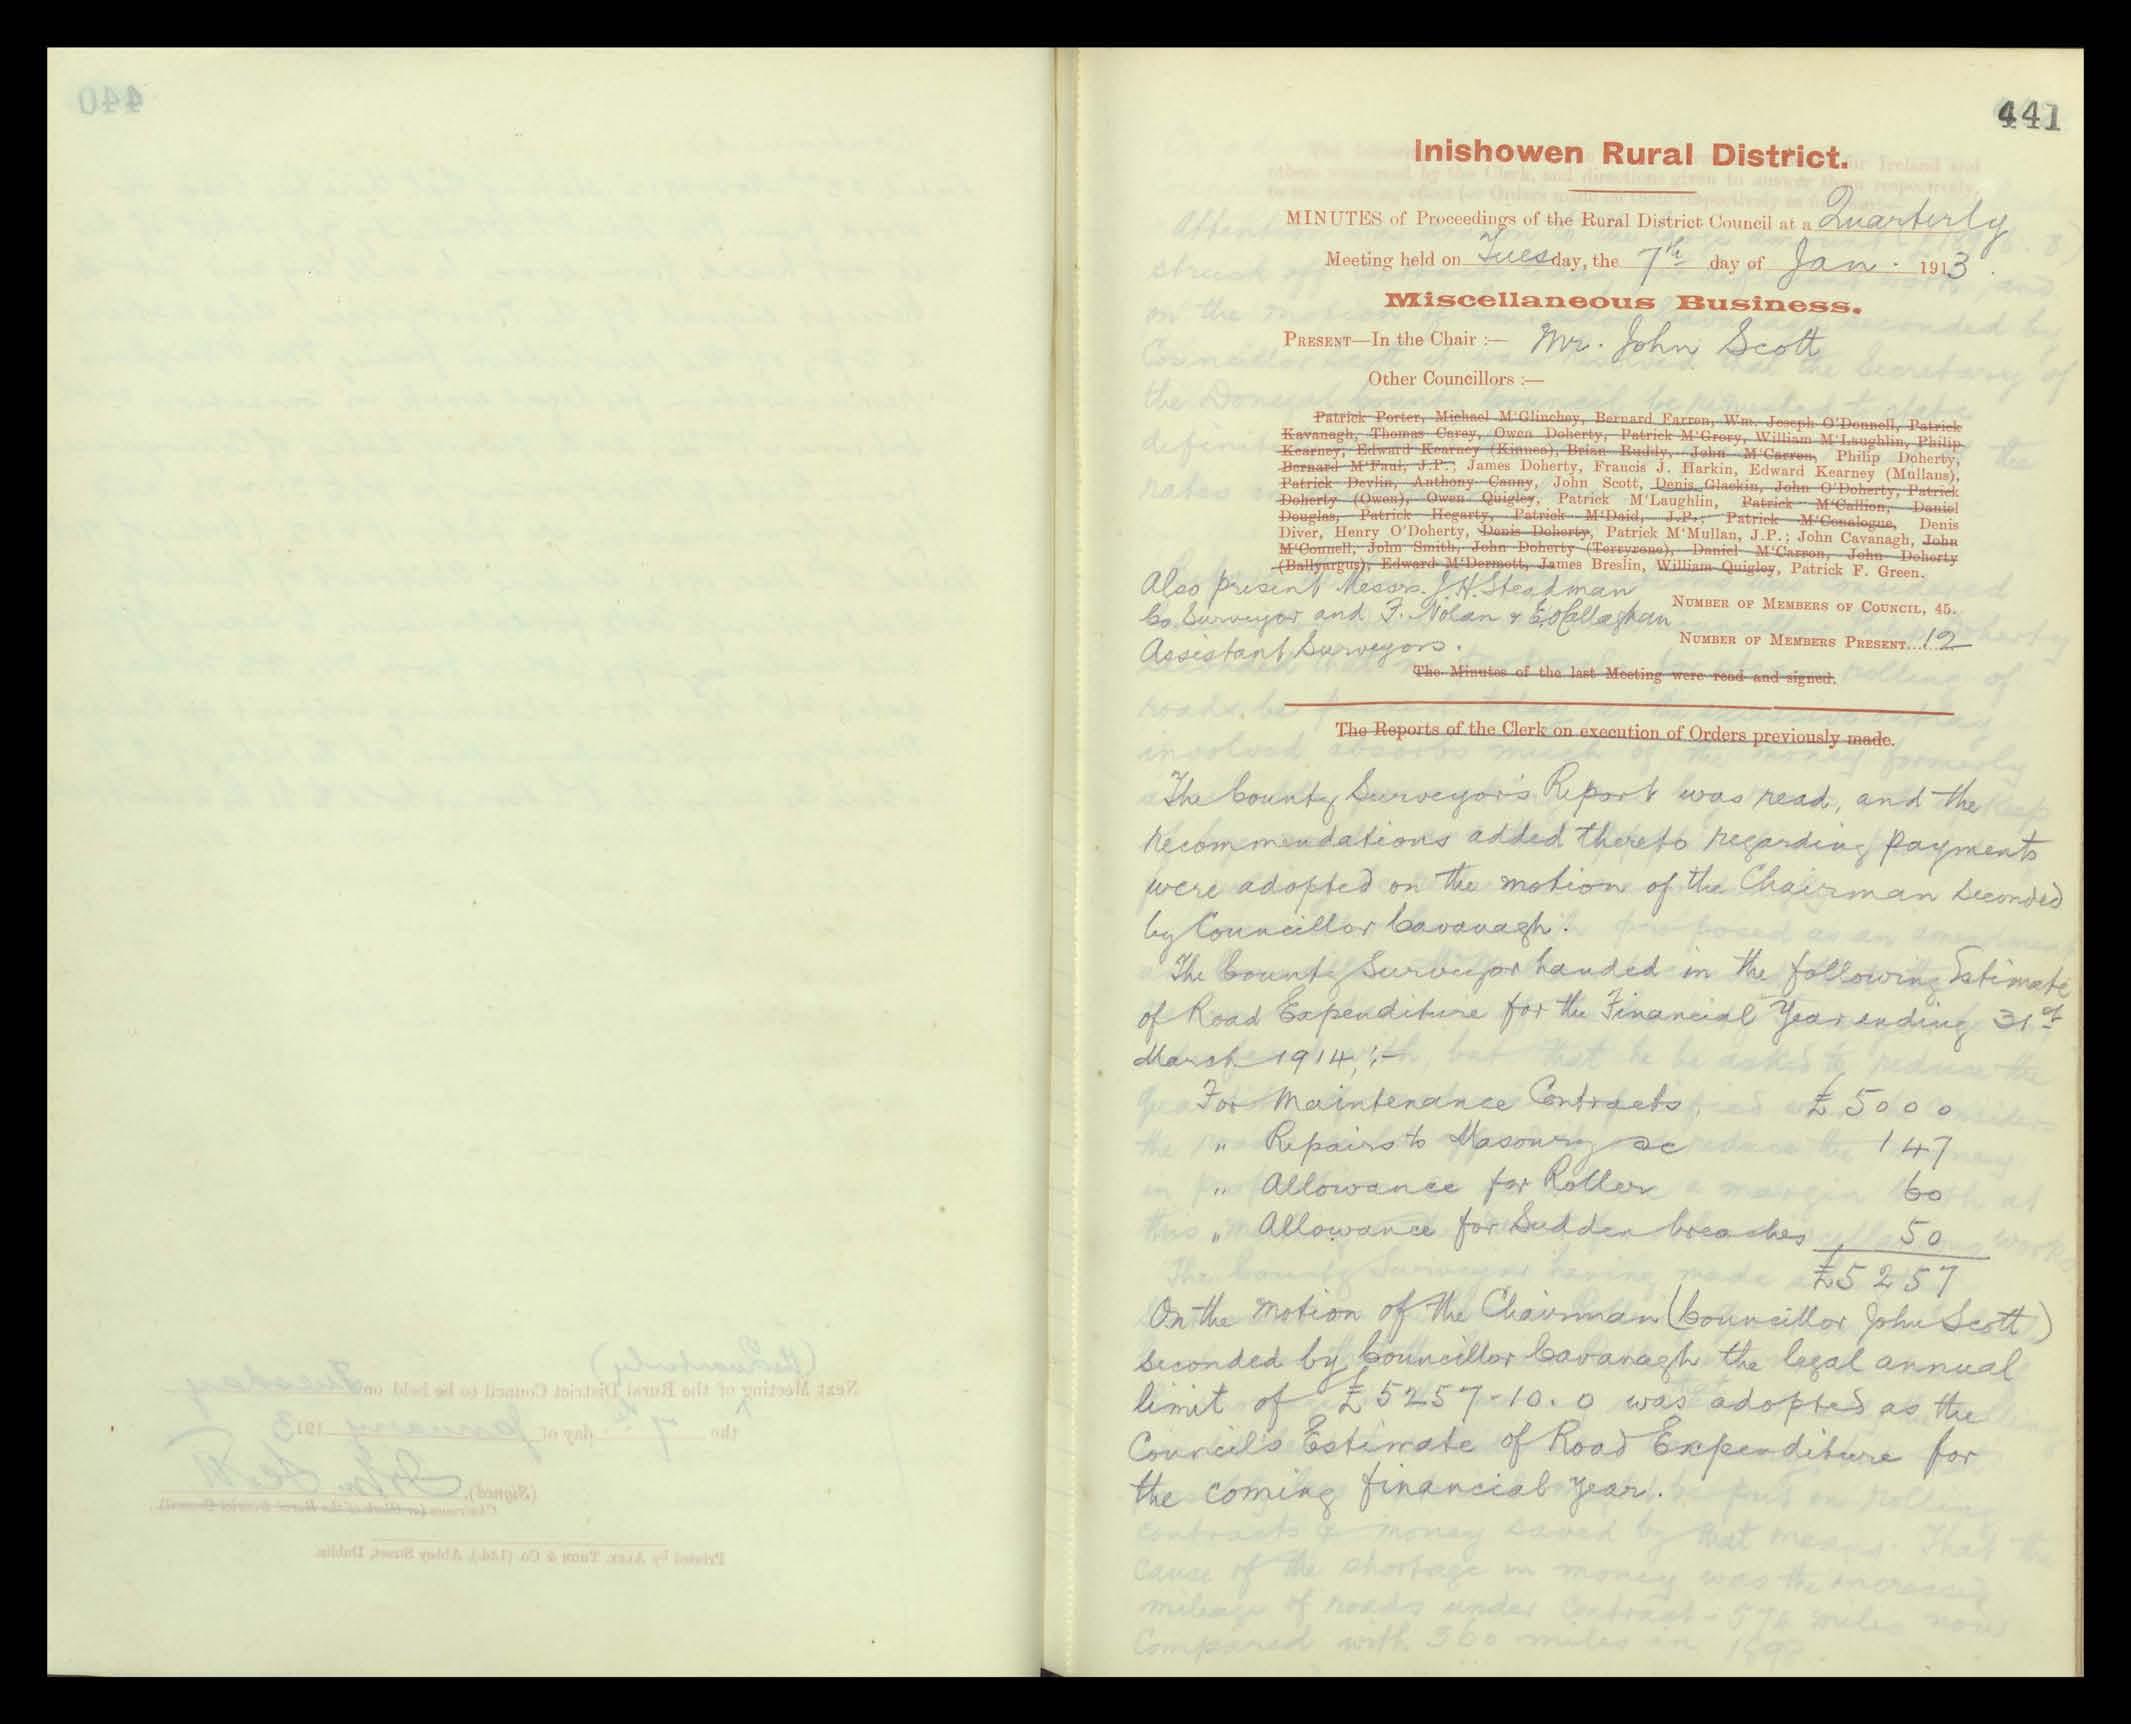 441
Inishowen Rural District.
MINUTES of Proceedings of the Rural District Council at a Quarterly
Meeting held on Tuesday, the 7th day of Jan. 1913.
Miscellaneous Business.
PRESENT—In the Chair :— Mr. John Scott
Other Councillors :—
Patrick Porter, Michael M'Glinchey, Bernard Farren, Wm. Joseph O'Donnell, Patrick
Kavanagh, Thomas Carey, Owen Doherty, Patrick M'Grory, William M'Laughlin, Philip
Kearney, Edward Kearney (Kinnea), Brian Ruddy, John M'Carron, Philip Doherty,
Bernard M'Faul, J.P.; James Doherty, Francis J. Harkin, Edward Kearney (Mullans),
Patrick Devlin, Anthony Canny, John Scott, Denis Glackin, John O'Doherty, Patrick
Doherty (Owen), Owen Quigley, Patrick M'Laughlin, Patrick M'Callion, Daniel
Douglas, Patrick Hegarty, Patrick M'Daid, J.P.; Patrick M'Conalogue, Denis
Diver, Henry O'Doherty, Denis Doherty, Patrick M'Mullan, J.P.; John Cavanagh, John
M'Connell, John Smith, John Doherty (Terryrone), Daniel M'Carron, John Doherty
(Ballyargus), Edward M'Dermott, James Breslin, William Quigley, Patrick F. Green.
Also present Messrs. J. H. Steadman
Co. Surveyor and F. Nolan & E. O'Callaghan
Assistant Surveyors.
NUMBER OF MEMBERS OF COUNCIL, 45.
NUMBER OF MEMBERS PRESENT... 12
The Minutes of the last Meeting were read and signed.
The Reports of the Clerk on execution of Orders previously made.
The County Surveyor's Report was read, and the
recommendations added thereto regarding payments
were adopted on the motion of the Chairman seconded
by Councillor Cavanagh.
The County Surveyor handed in the following Estimate
of Road Expenditure for the Financial Year ending 31st
March 1914,:-
For Maintenance Contracts, £5000
" Repairs to Masonry &c 147
" Allowance for Roller 60
" Allowance for Sudden breaches 50
£5257
On the motion of the Chairman (Councillor John Scott)
seconded by Councillor Cavanagh the legal annual
limit of £5257-10.0 was adopted as the
Council's Estimate of Road Expenditure for
the coming financial year.